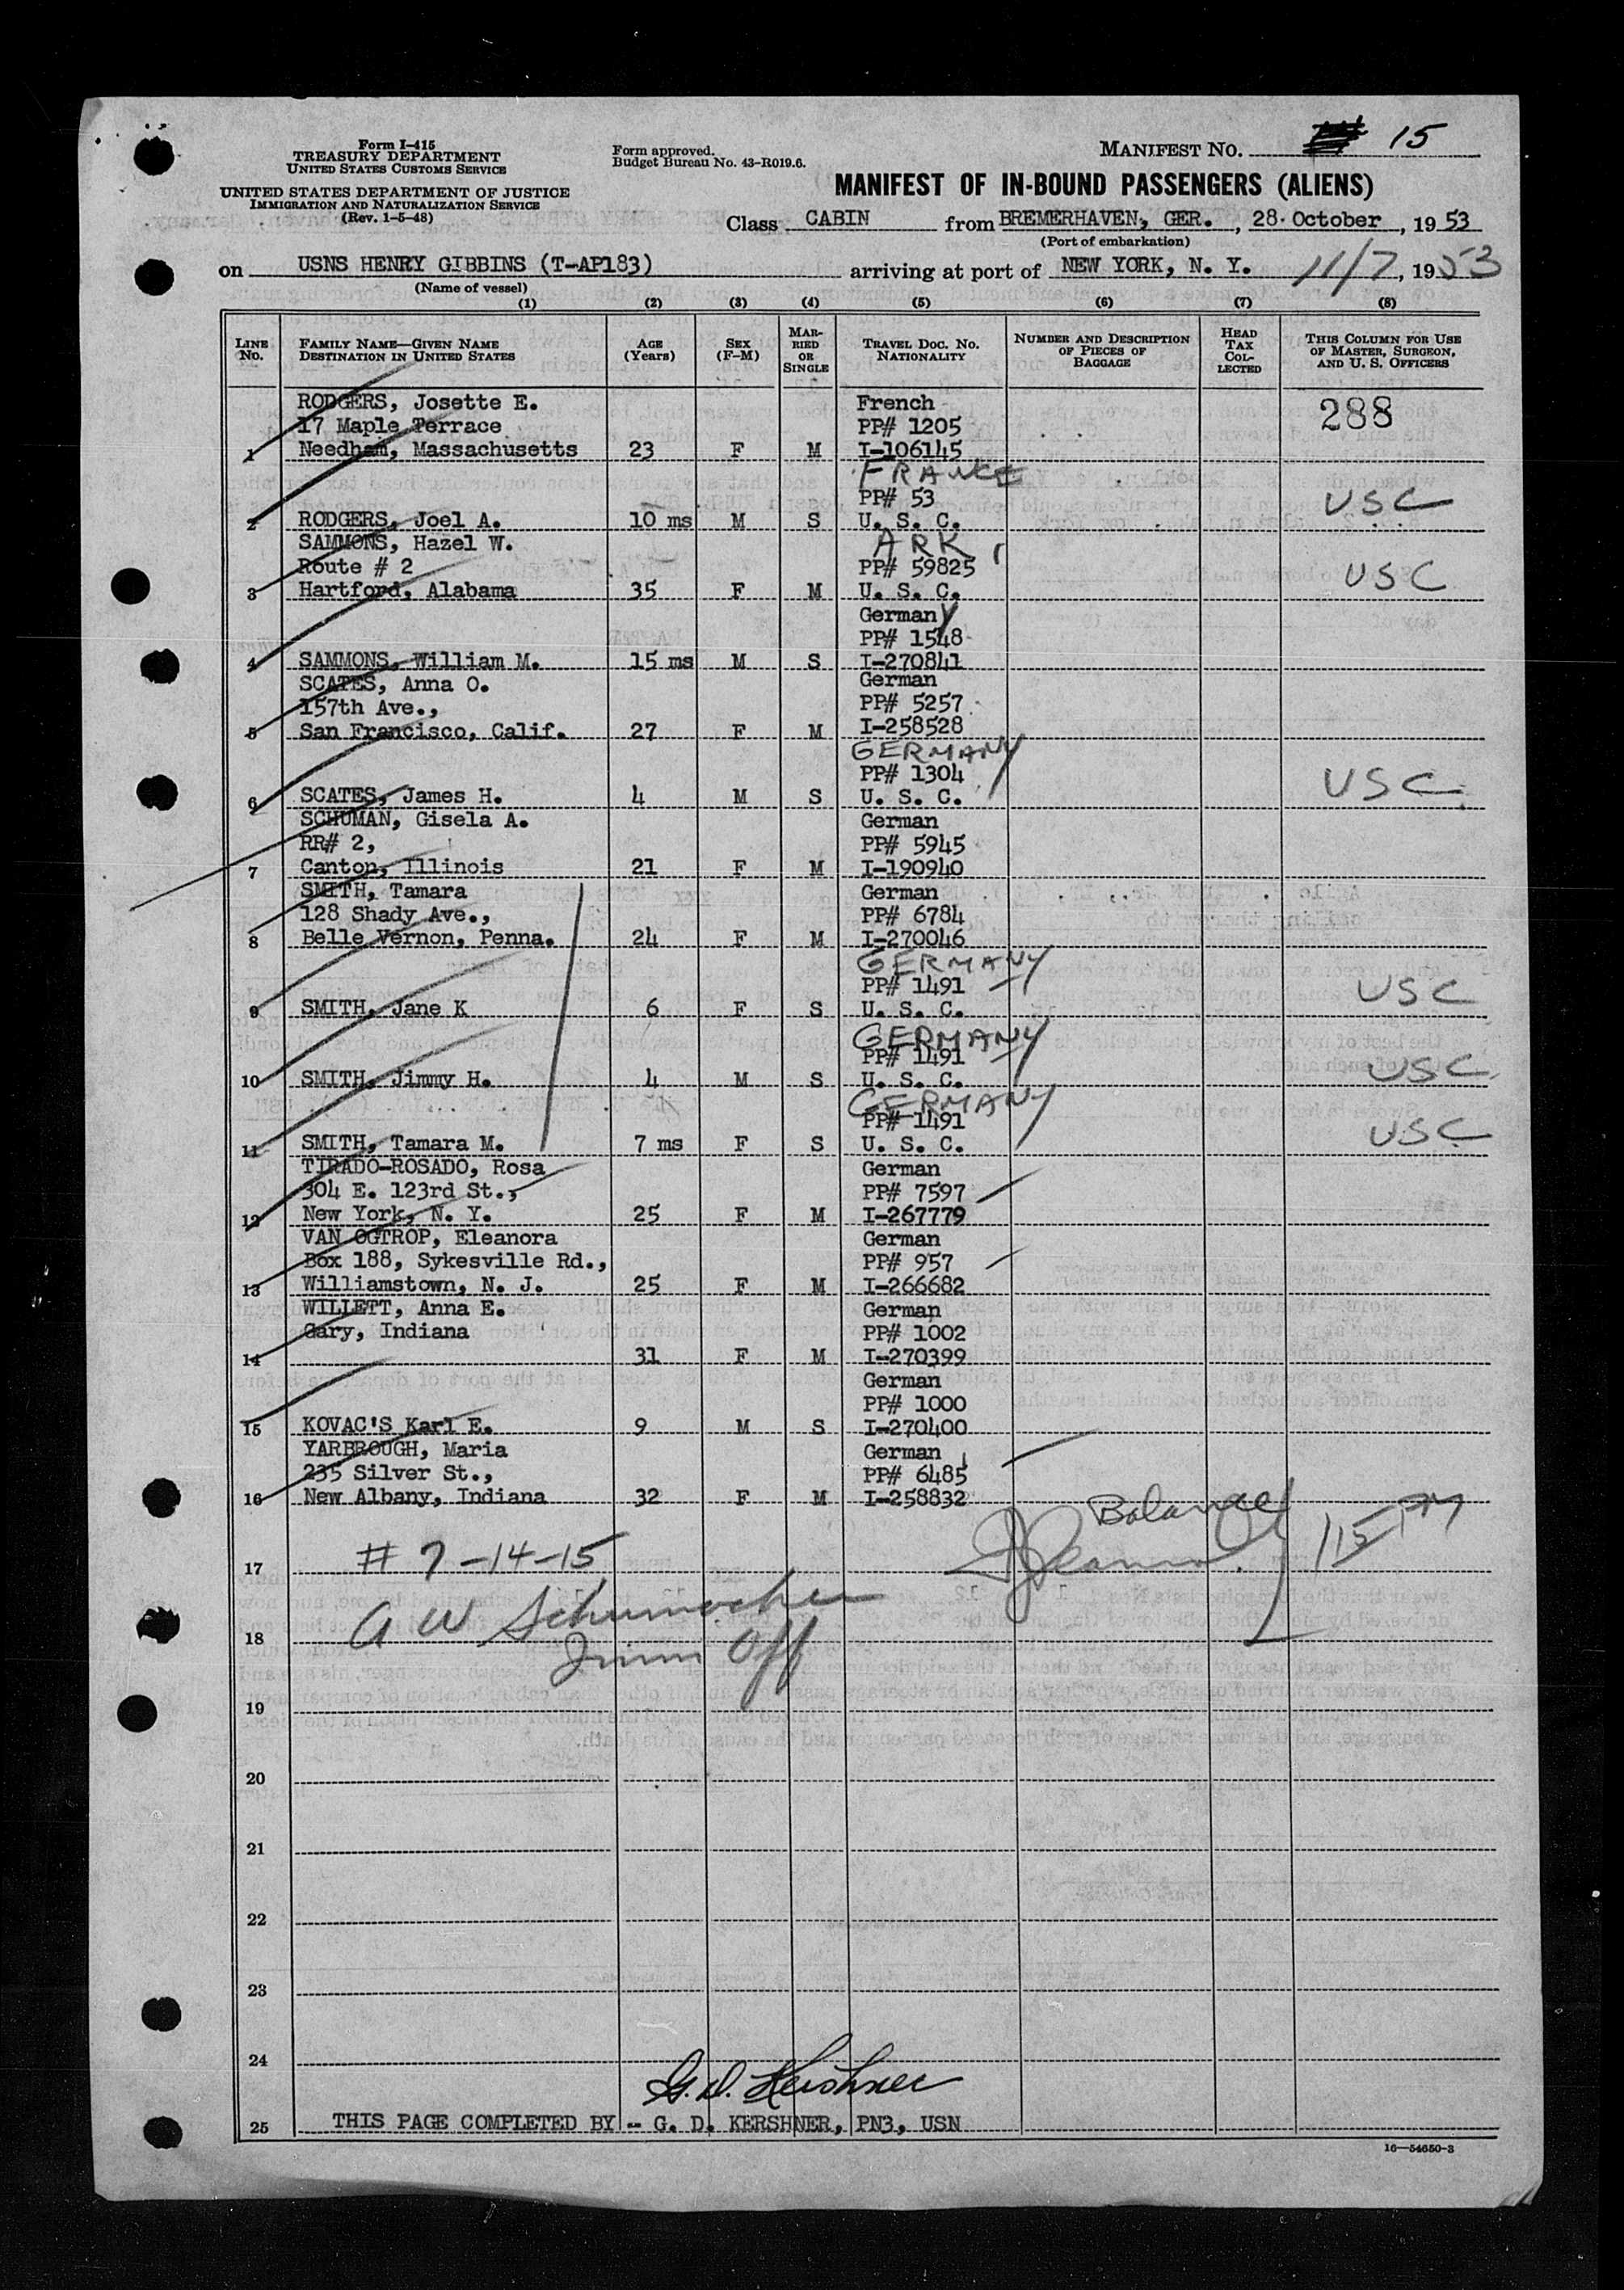 Form I-415
TREASURY DEPARTMENT
UNITED STATES CUSTOMS SERVICE
UNITED STATES DEPARTMENT OF JUSTICE
IMMIGRATION AND NATURALIZATION SERVICE
(Rev. 1-5-48)
Form approved.
Budget Bureau No. 43-R019.6.
MANIFEST NO. 15
MANIFEST OF IN-BOUND PASSENGERS (ALIENS)
Class CABIN from BREMERHAVEN, GER., 28 October, 1953
(Port of embarkation)
on USNS HENRY GIBBINS (T-AP183) arriving at port of NEW YORK, N. Y. 11/7, 1953
(Name of vessel)
(1) (2) (3) (4) (5) (6) (7) (8)
LINE NO. FAMILY NAME—GIVEN NAME DESTINATION IN UNITED STATES AGE (Years) SEX (F-M) MARRIED OR SINGLE TRAVEL DOC. NO. NATIONALITY NUMBER AND DESCRIPTION OF PIECES OF BAGGAGE HEAD TAX COLLECTED THIS COLUMN FOR USE OF MASTER, SURGEON, AND U. S. OFFICERS
RODGERS, Josette E. French 288
17 Maple Terrace PP# 1205
1 Needham, Massachusetts 23 F M I-106145
FRANCE
PP# 53 USC
2 RODGERS, Joel A. 10 ms M S U. S. C.
SAMMONS, Hazel W. ARK
Route # 2 PP# 59825 USC
3 Hartford, Alabama 35 F M U. S. C.
Germany
PP# 1548
4 SAMMONS, William M. 15 ms M S I-270841
SCATES, Anna O. German
157th Ave., PP# 5257
5 San Francisco, Calif. 27 F M I-258528
GERMANY
PP# 1304 USC
6 SCATES, James H. 4 M S U. S. C.
SCHUMAN, Gisela A. German
RR# 2, PP# 5945
7 Canton, Illinois 21 F M I-190940
SMITH, Tamara German
128 Shady Ave., PP# 6784
8 Belle Vernon, Penna. 24 F M I-270046
GERMANY
PP# 1491 USC
9 SMITH, Jane K 6 F S U. S. C.
GERMANY
PP# 1491 USC
10 SMITH, Jimmy H. 4 M S U. S. C.
GERMANY
PP# 1491 USC
11 SMITH, Tamara M. 7 ms F S U. S. C.
TIRADO-ROSADO, Rosa German
304 E. 123rd St., PP# 7597
12 New York, N. Y. 25 F M I-267779
VAN OGTROP, Eleanora German
Box 188, Sykesville Rd., PP# 957
13 Williamstown, N. J. 25 F M I-266682
WILLETT, Anna E. German
Gary, Indiana PP# 1002
14 31 F M I-270399
German
PP# 1000
15 KOVAC'S Karl E. 9 M S I-270400
YARBROUGH, Maria German
235 Silver St., PP# 6485
16 New Albany, Indiana 32 F M I-258832
Balance
17 # 7-14-15
18 A W Schumacher
Imm Off
19
20
21
22
23
24
G. D. Kershner
25 THIS PAGE COMPLETED BY -- G. D. KERSHNER, PN3, USN
16—54650-3